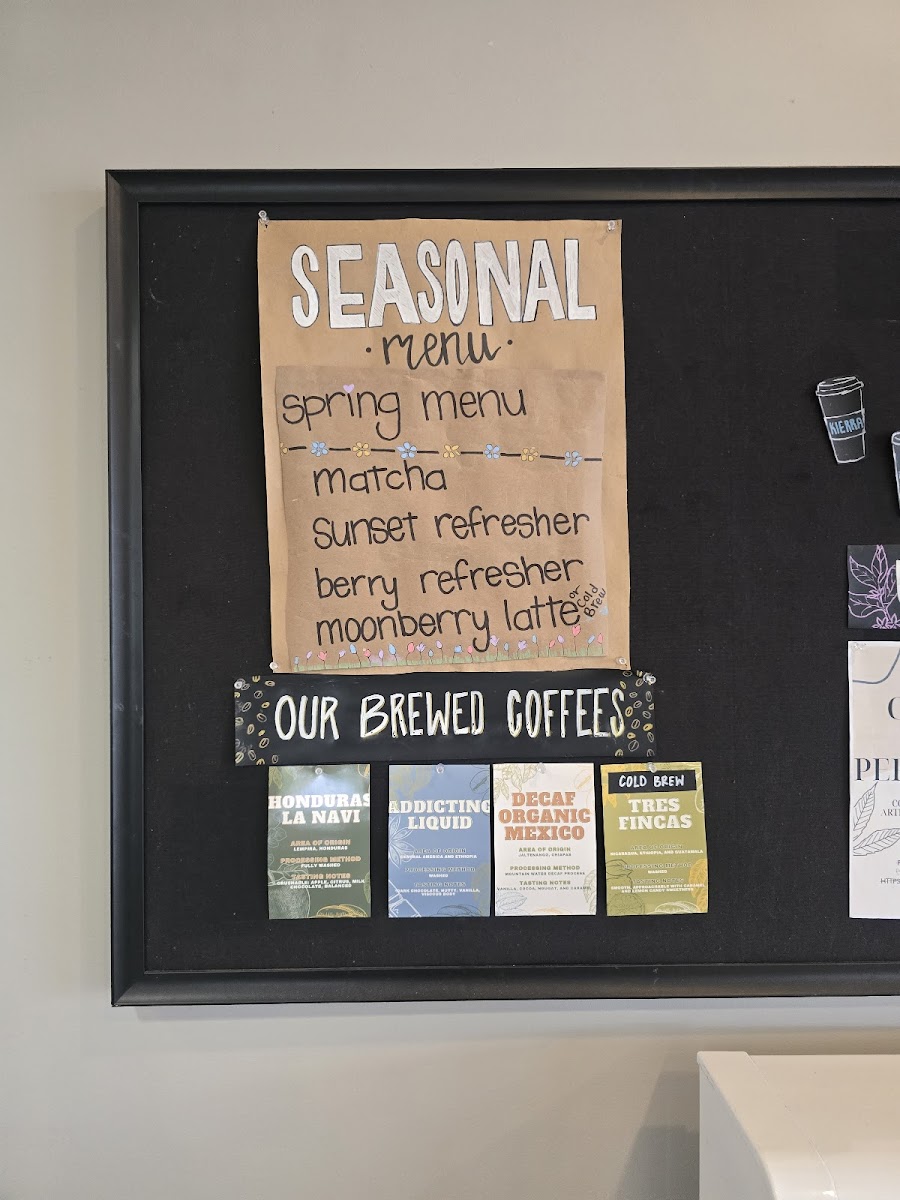 SEASONAL
menu
spring menu
matcha
sunset refresher
berry refresher
moonberry latte or Cold Brew
OUR BREWED COFFEES
HONDURAS
LA NAVI
AREA OF ORIGIN
LEMPIRA, HONDURAS
PROCESSING METHOD
FULLY WASHED
TASTING NOTES
CRUSHABLE: APPLE, CITRUS, MILK
CHOCOLATE, BALANCED
ADDICTING
LIQUID
AREA OF ORIGIN
CENTRAL AMERICA AND ETHIOPIA
PROCESSING METHOD
WASHED
TASTING NOTES
DARK CHOCOLATE, NUTTY, VANILLA,
VISCOUS BODY
DECAF
ORGANIC
MEXICO
AREA OF ORIGIN
JALTENANGO, CHIAPAS
PROCESSING METHOD
MOUNTAIN WATER DECAF PROCESS
TASTING NOTES
VANILLA, COCOA, NOUGAT, AND CARAMEL
COLD BREW
TRES
FINCAS
AREA OF ORIGIN
NICARAGUA, ETHIOPIA, AND GUATEMALA
PROCESSING METHOD
WASHED
TASTING NOTES
SMOOTH, APPROACHABLE WITH CARAMEL
AND LEMON CANDY
KIERRA